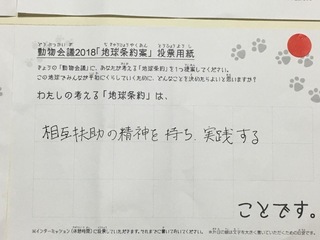 動物会議2018「地球条約案」投票用紙
きょうの「動物会議」に、あなたが考える「地球条約」を1つ提案してください。
この地球でみんなが平和にくらしていくために、どんなことを決めたらよいと思いますか?
わたしの考える「地球条約」は、
相互扶助の精神を持ち、実践する
ことです。